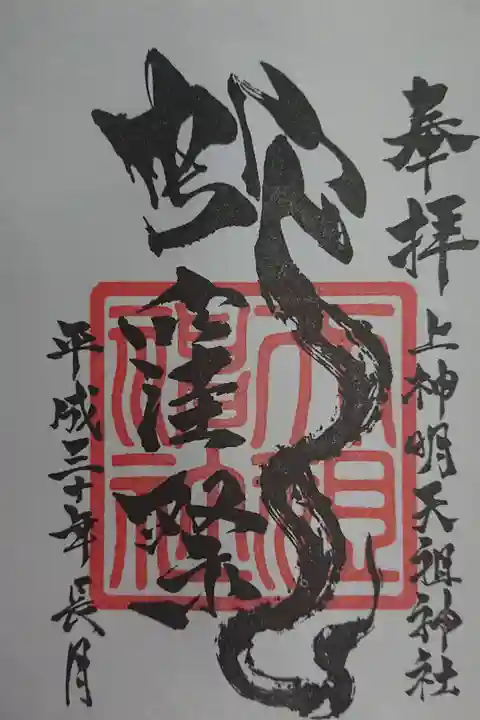 奉拝
上神明天祖神社
蛇窪祭
平成三十年長月
天祖神社